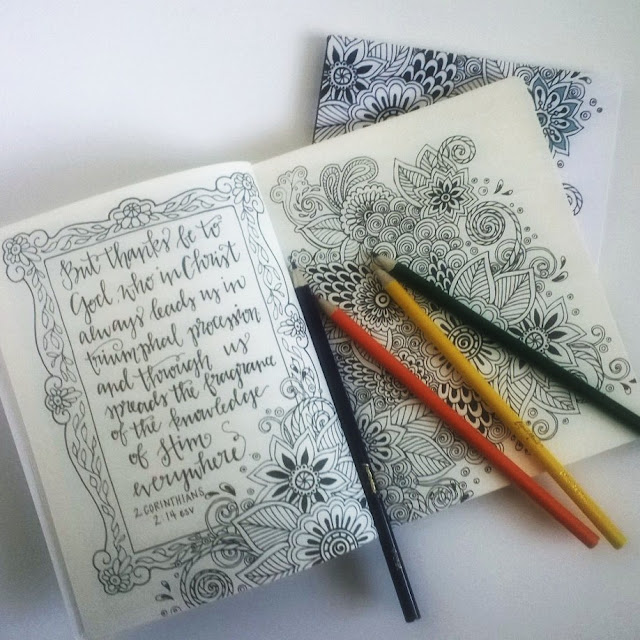 But thanks be to
God, who in Christ
always leads us in
triumphal procession
and through us
spreads the fragrance
of the knowledge
of Him
everywhere.
2 CORINTHIANS
2:14 ESV